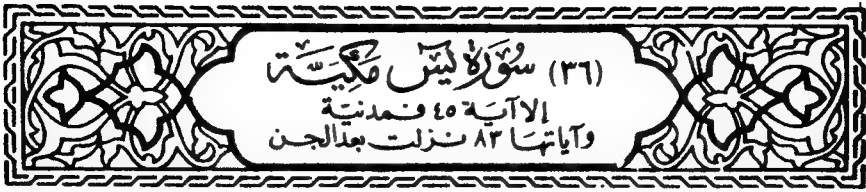 (٣٦) سُورَة يٰسٓ مَكِّيَّة
إلا آية ٤٥ فمدنية
وآياتها ٨٣ نزلت بعد الجن